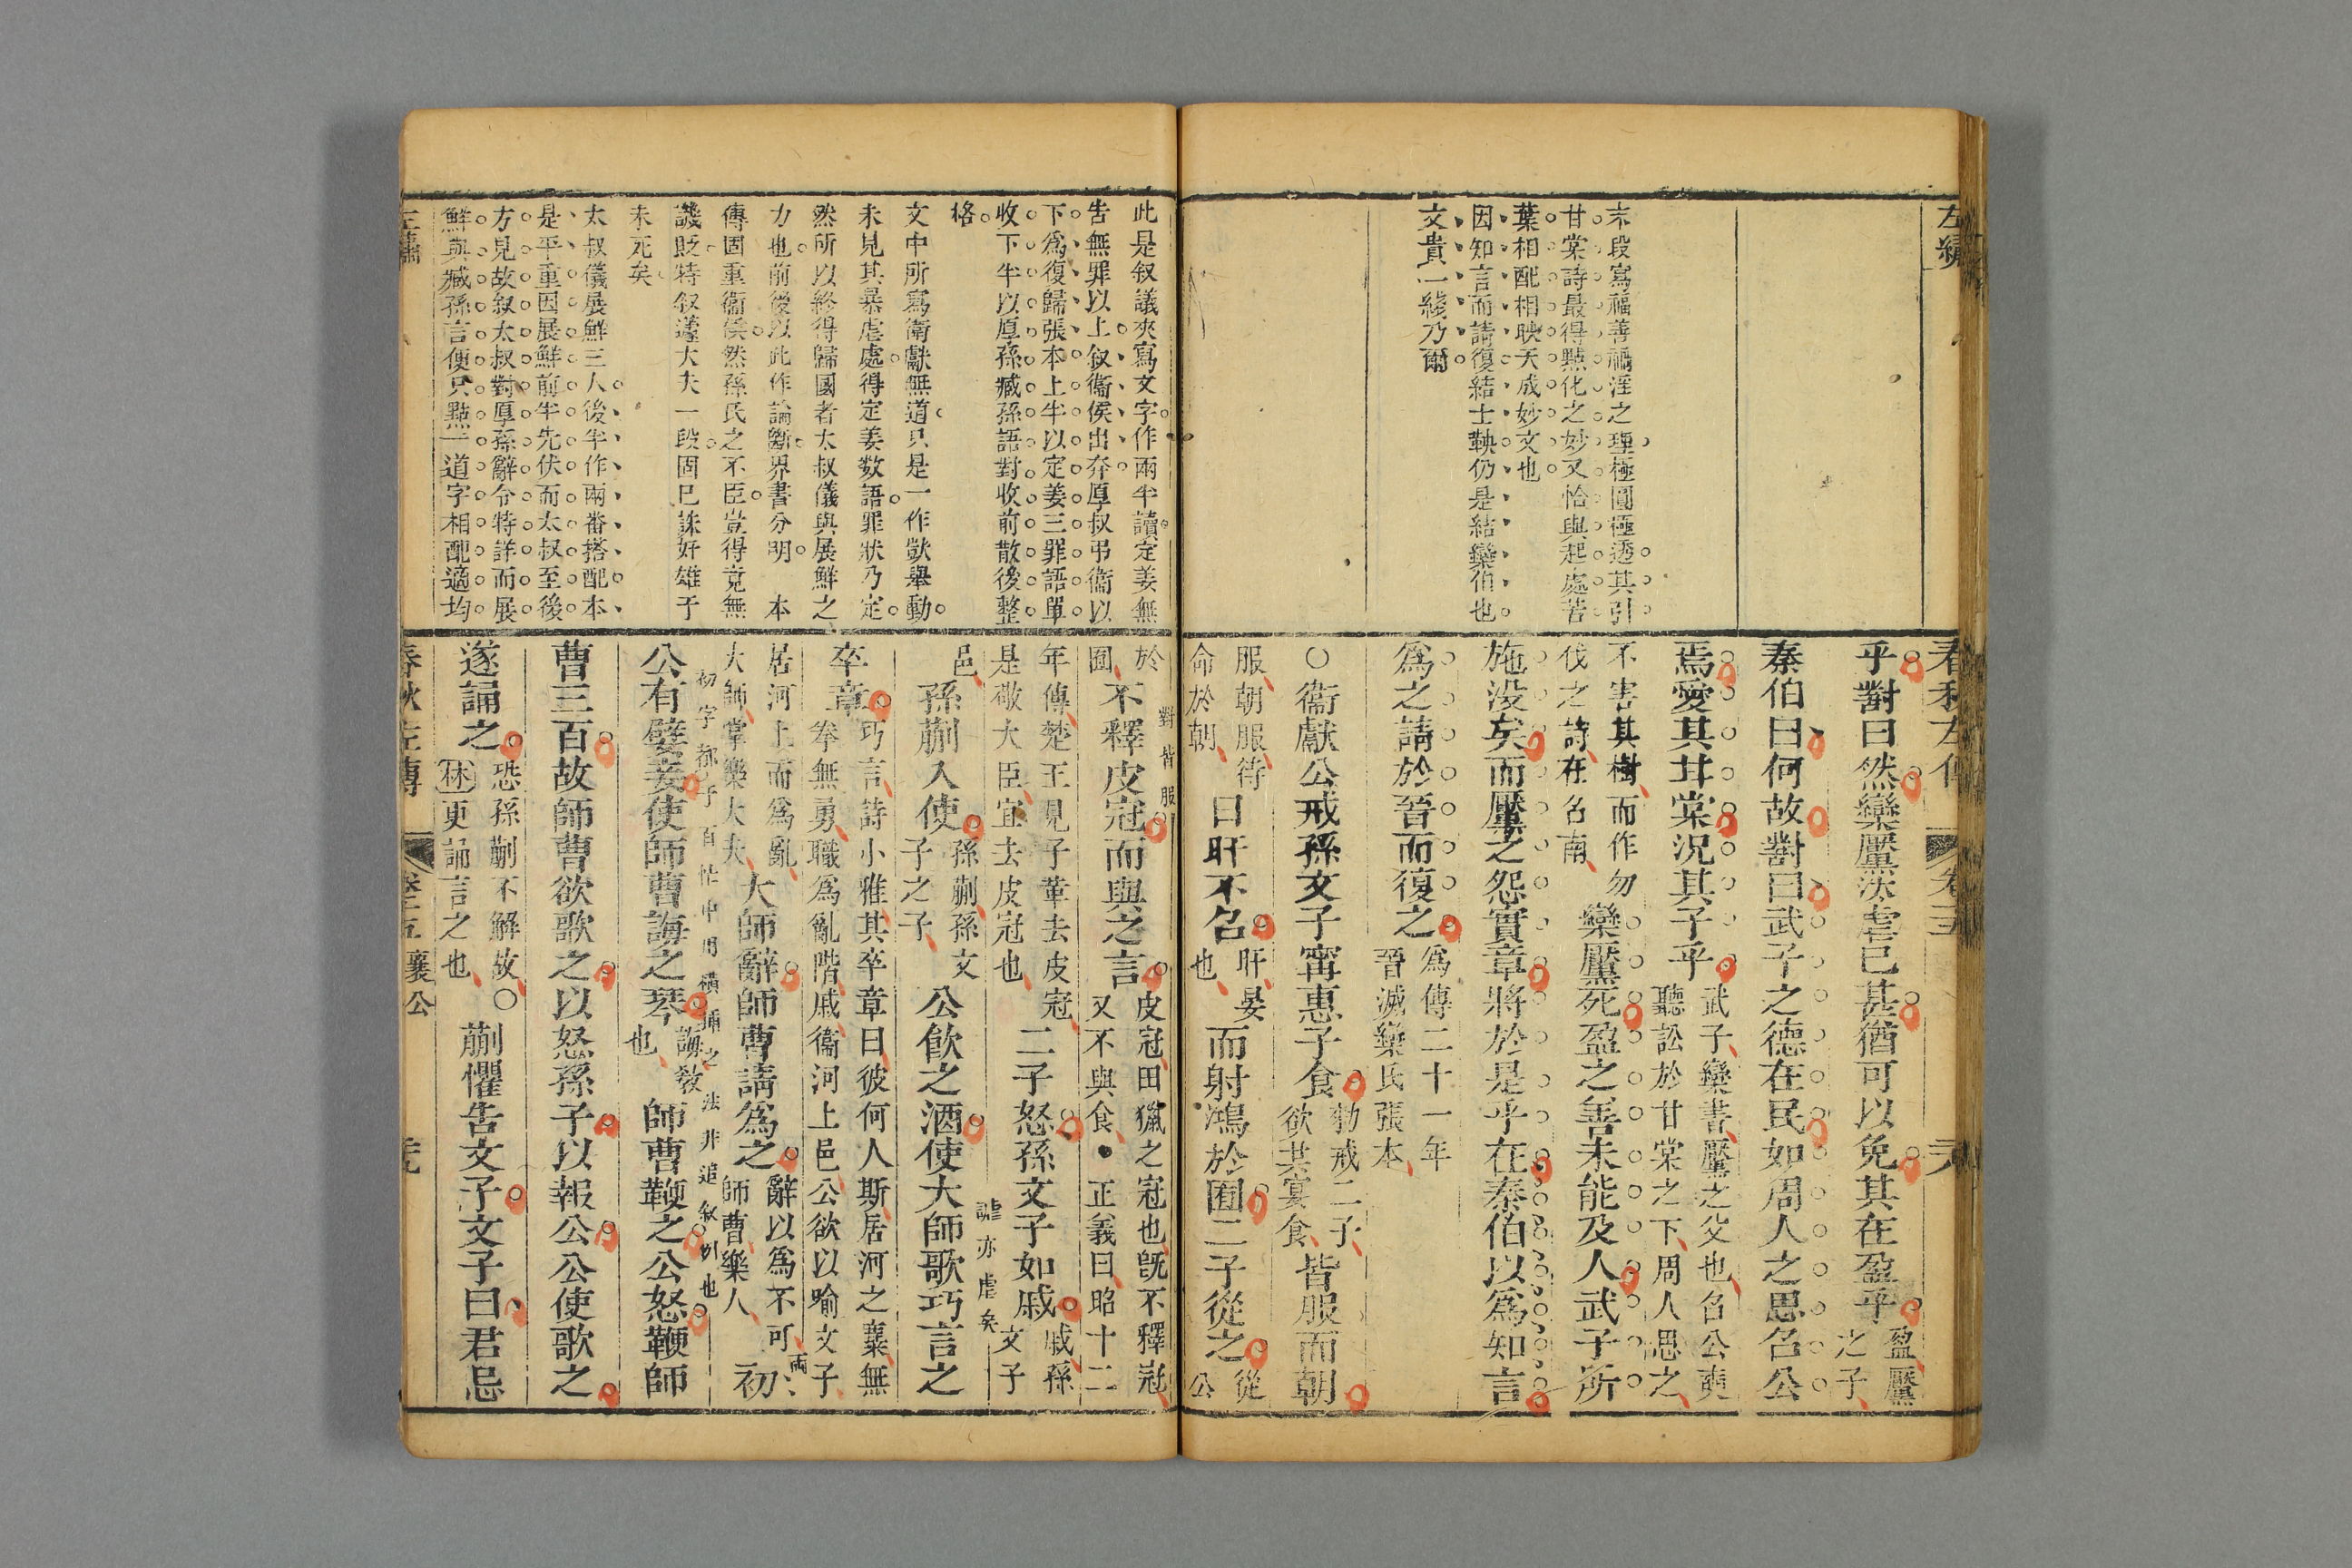 左繡
末段寫福善禍淫之理極圓極透其引
甘棠詩最得點化之妙又恰與起處苦
葉相配相映天成妙文也
因知言而請復結士鞅仍是結欒伯也
文貴一綫乃爾
春秋左傳 卷十五 六
乎對曰然欒黶汰虐已甚猶可以免其在盈乎盈黶之子
秦伯曰何故對曰武子之德在民如周人之思召公
焉愛其甘棠況其子乎武子欒書黶之父也召公奭聽訟於甘棠之下周人思之
不害其樹而作勿伐之詩在召南欒黶死盈之善未能及人武子所
施沒矣而黶之怨實章將於是乎在秦伯以爲知言
爲之請於晉而復之爲傳二十一年晉滅欒氏張本
○衞獻公戒孫文子甯惠子食勑戒二子欲共宴食皆服而朝
服朝服待命於朝日旰不召旰晏也而射鴻於囿二子從之從公
此是叙議夾寫文字作兩半讀定姜無
告無罪以上叙衞侯出奔厚叔弔衞以
下爲復歸張本上半以定姜三罪語單
收下半以厚孫臧孫語對收前散後整
格
文中所寫衞獻無道只是一作獃舉動
未見其暴虐處得定姜數語罪狀乃定
然所以終得歸國者太叔儀與展鮮之
力也前後以此作論斷界畫分明 本
傳固重衞侯然孫氏之不臣豈得竟無
譏貶特叙蘧大夫一段固已誅奸雄于
未死矣
太叔儀展鮮三人後半作兩番搭配本
是平重因展鮮前半先伏而太叔至後
方見故叙太叔對厚孫辭令特詳而展
鮮與臧孫言便只點一道字相配適均
於囿不釋皮冠而與之言皮冠田獵之冠也旣不釋冠又不與食●正義曰昭十二
對皆服
年傳楚王見子革去皮冠是敬大臣宜去皮冠也二子怒孫文子如戚戚孫文子
邑孫蒯入使孫蒯孫文子之子公飮之酒使大師歌巧言之
謔亦虐矣
卒章巧言詩小雅其卒章曰彼何人斯居河之麋無拳無勇職爲亂階戚衞河上邑公欲以喻文子
居河上而爲亂大師掌樂大夫大師辭師曹請爲之辭以爲不可師曹樂人初
公有嬖妾使師曹誨之琴誨敎也師曹鞭之公怒鞭師
曹三百故師曹欲歌之以怒孫子以報公公使歌之
遂誦之恐孫蒯不解故○林更誦言之也蒯懼告文子文子曰君忌
左繡
春秋左傳 卷十五 襄公